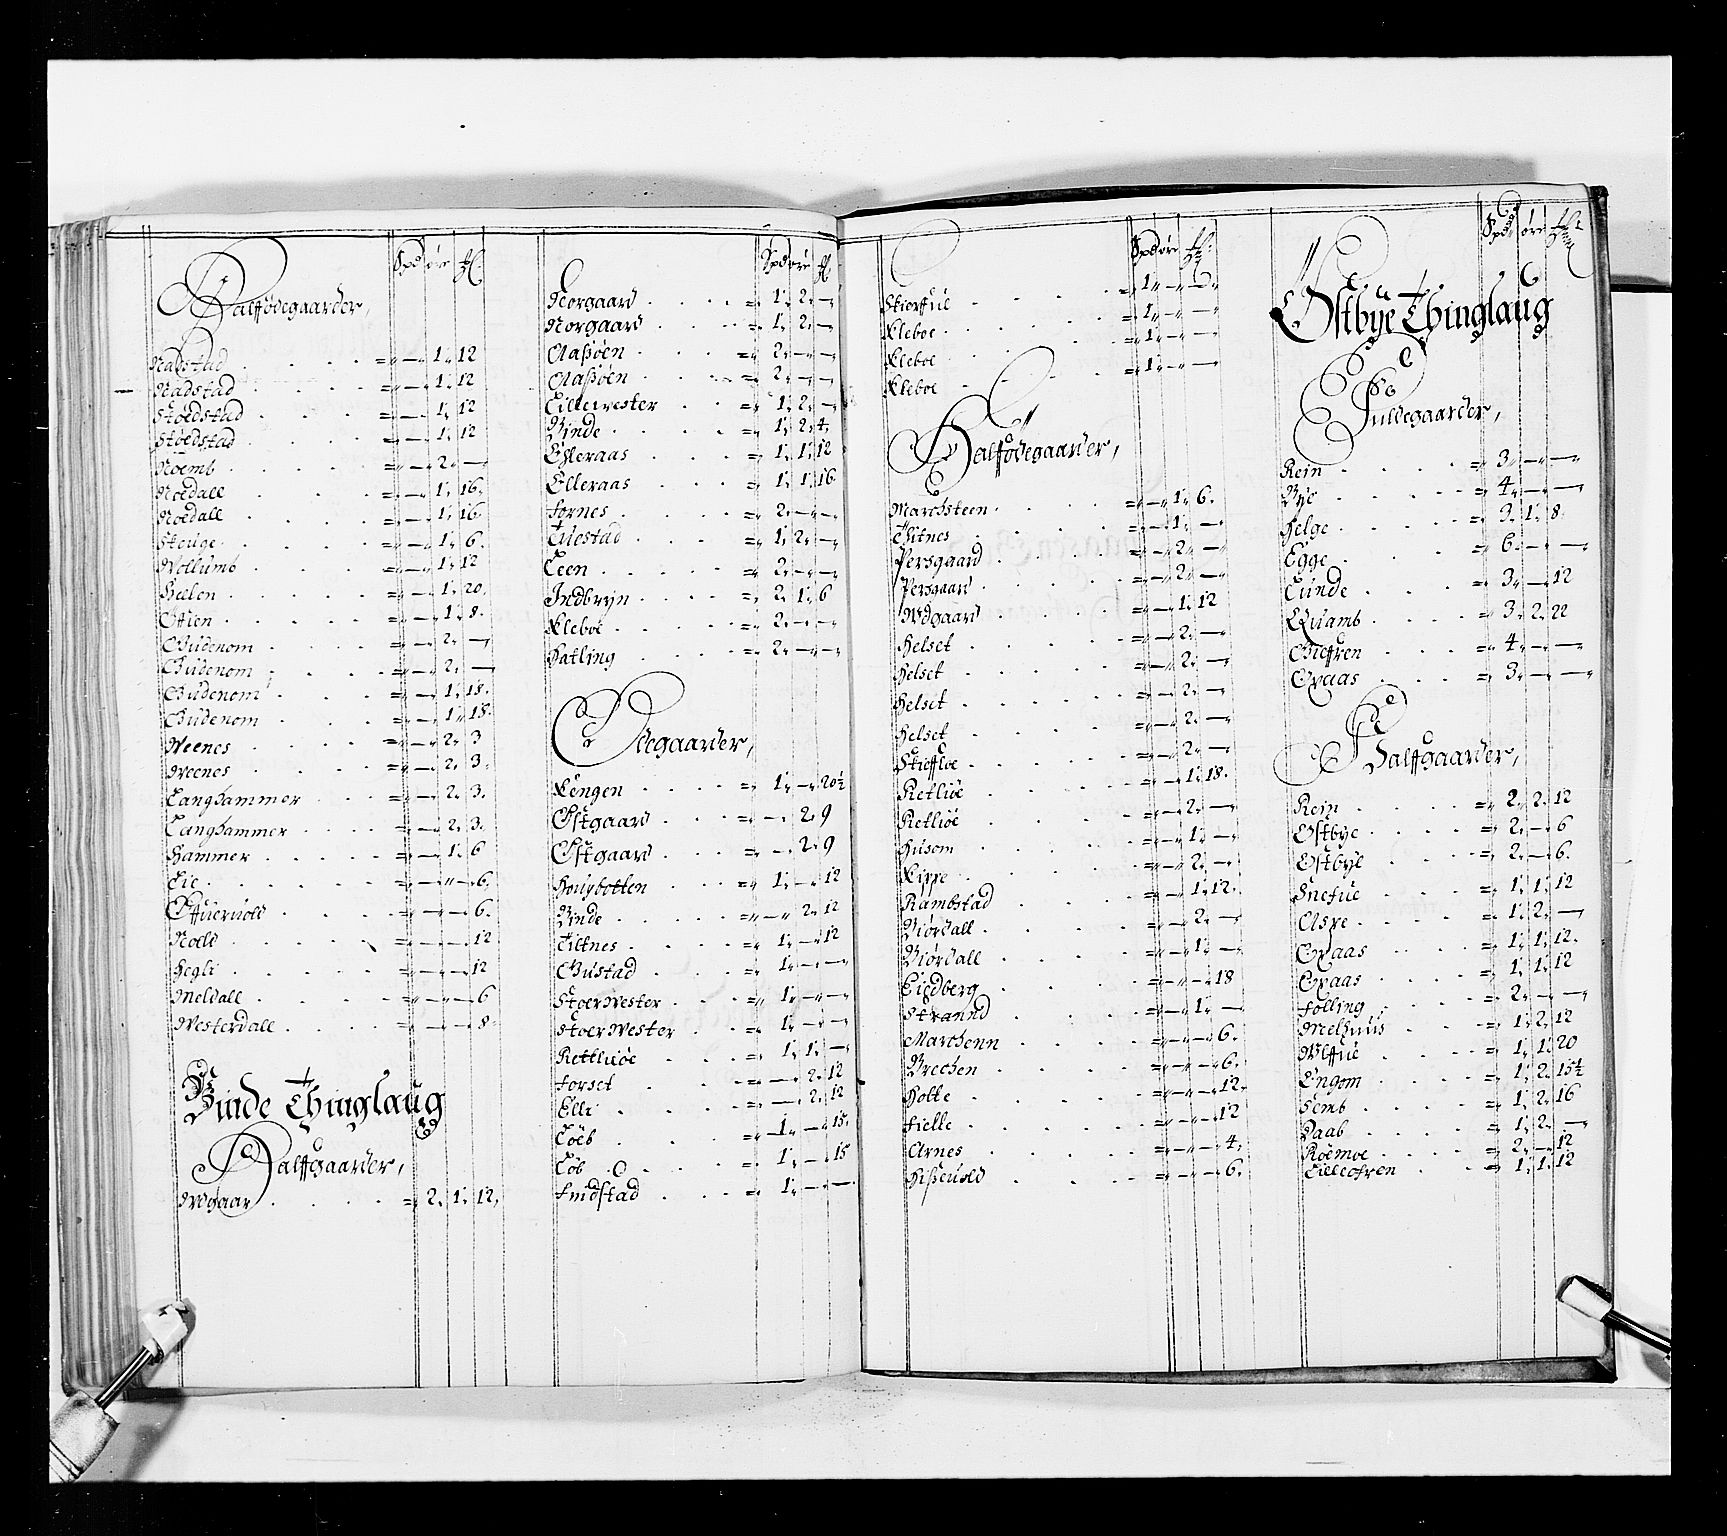 Spd øre
Halfødegaarder,
Nadstad . . . = „ — 1. 12
Nadstad . . . = „ — 1. 12
Stoedstad . . . = „ — 1. 12
Stoedstad . . . = „ — 1. 12
Noemb . . . = „ — 2. —
Noedall . . . = „ — 1. 16.
Noedall . . . = „ — 1. 16.
Steuge . . . = „ — 1. 6.
Wollumb . . . = „ — 1. 12
Heelen . . . = „ — 1. 20.
Oftien . . . = „ — 1. 8.
Gudenom . . . = „ — 2. —
Gudenom . . . = „ — 2. —
Gudenom . . . = „ — 1. 18.
Gudenom . . . = „ — 1. 18.
Weenes . . . = „ — 2. 3
Weenes . . . = „ — 2. 3.
Langhammer . . . = „ — 2. 3.
Langhammer . . . = „ — 2. 3.
Hammer . . . = „ — 1. 6
Lie . . . = „ — „ — 6.
. . . = „ — „ — 6.
Noeld . . . = „ — „ — 12
Hegli . . . = „ — „ — 12
Meldall . . . = „ — „ — 6
Westerdall . . . = „ — „ — 8.
Binde Thinglaug
Halffgaarder,
Wdgaar . . . = „ 2. 1. 12.
Spd øre
Norgaard . . . = „ 1. 2. —
Norgaard . . . = „ 1. 2. —
Claßøen . . . = „ 2. — —
Claßøen . . . = „ 2. — —
Lillewester . . . = „ 1. 2. —
Binde . . . = „ 1. 2. 4.
Elleraas . . . = „ 1. 1. 12
Elleraas . . . = „ 1. 1. 16.
Fornes . . . = „ 2. — —
Tuestad . . . = „ 1. 2. —
Leen . . . = „ 2. — —
Indbryn . . . = „ 2. 1. 6
Kleboe . . . = „ 2. — —
Hatling . . . = „ 2. — —
Ødegaarder,
Lengen . . . = „ 1. — 20½
Østgaard . . . = „ — 2. 9
Østgaard . . . = „ — 2. 9
Houybotten . . . = „ 1. — 12
Binde . . . = „ — 2. 12
Tiltnes . . . = „ 1. — 12
Gustad . . . = „ 1. — —
Stoerwester . . . = „ 1. — —
StoerWester . . . = „ 1. — —
Rettluoe . . . = „ 1. 1. —
Forset . . . = „ — 2. 12
Elli . . . = „ — 2. 12
Løeb . . . = „ 1. — 15.
Løb . . . = „ 1. — 15
Findstad . . . = „ 1. — —
Spd øre
Skierffue . . . = „ 1. — —
Kleboe . . . = „ 1. — —
Kleboe . . . = „ 1. — —
Kleboe . . . = „ 1. — —
Halfødegaarder,
Marchsteen . . . = „ — 1. 6.
Tiltnes . . . = „ — 1. —
Persgaard . . . = „ — 2. —
Persgaard . . . = „ — 2. —
Wdgaard . . . = „ — 1. 12
Helset . . . = „ — 2. —
Helset . . . = „ — 2. —
Helset . . . = „ — 2. —
Helset . . . = „ — 2. —
Skieffloe . . . = „ — 2. —
Retluoe . . . = „ — 1. 18.
Retluoe . . . = „ — 2. —
Husom . . . = „ — 1. —
Kippe . . . = „ — 2. —
Rambstad . . . = „ — 1. 12.
Biørdall . . . = „ — 2. —
Biørdall . . . = „ — 1. —
Liedberg . . . = „ — „ — 18
Strannd . . . = „ — 1. —
Marchenn . . . = „ — „ — 6.
Brechen . . . = „ — „ — 6.
Holte . . . = „ — „ — 12.
Fielle . . . = „ — „ — 12
Arnes . . . = „ — „ — 4.
Hißeuold . . . = „ — „ — 6.
Spd øre
Ostbye Thinglaug
Fuldegaarder,
Rein . . . = „ 3. — —
Bye . . . = „ 4. — —
Helge . . . = „ 3. 1. 8.
Egge . . . = „ 6. — —
Lunde . . . = „ 3. — 12
Quamb . . . = „ 3. 2. 22
Gieffren . . . = „ 4. — —
Opaas . . . = „ 3. — —
Halffgaarder,
Rein . . . = „ 2. 2. 12
Ostbye . . . = „ 2. — 6
Ostbye . . . = „ 2. — 6.
Snefue . . . = „ 1. 1. 12
Aspe . . . = „ 1. 2. —
Opaas . . . = „ 1. 1. 12.
Opaas . . . = „ 1. 1. 12
Følling . . . = „ 2. — —
Melhuus . . . = „ 1. 2. 12
Wlffue . . . = „ 1. 1. 20
Engom . . . = „ 1. 2. 15½
Semb . . . = „ 1. 2. 16
Daab . . . = „ 1. 2. —
Røemoe . . . = „ 2. — 12
Lilleofren . . . = „ 1. 1. 12